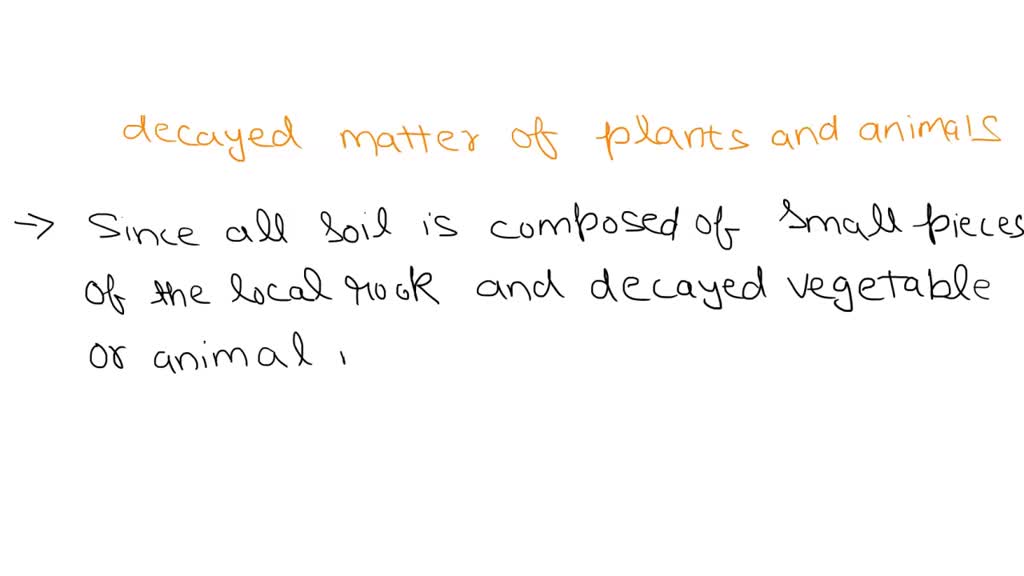 decayed matter of plants and animals
→ Since all soil is composed of small pieces
of the local rock and decayed vegetable
or animal